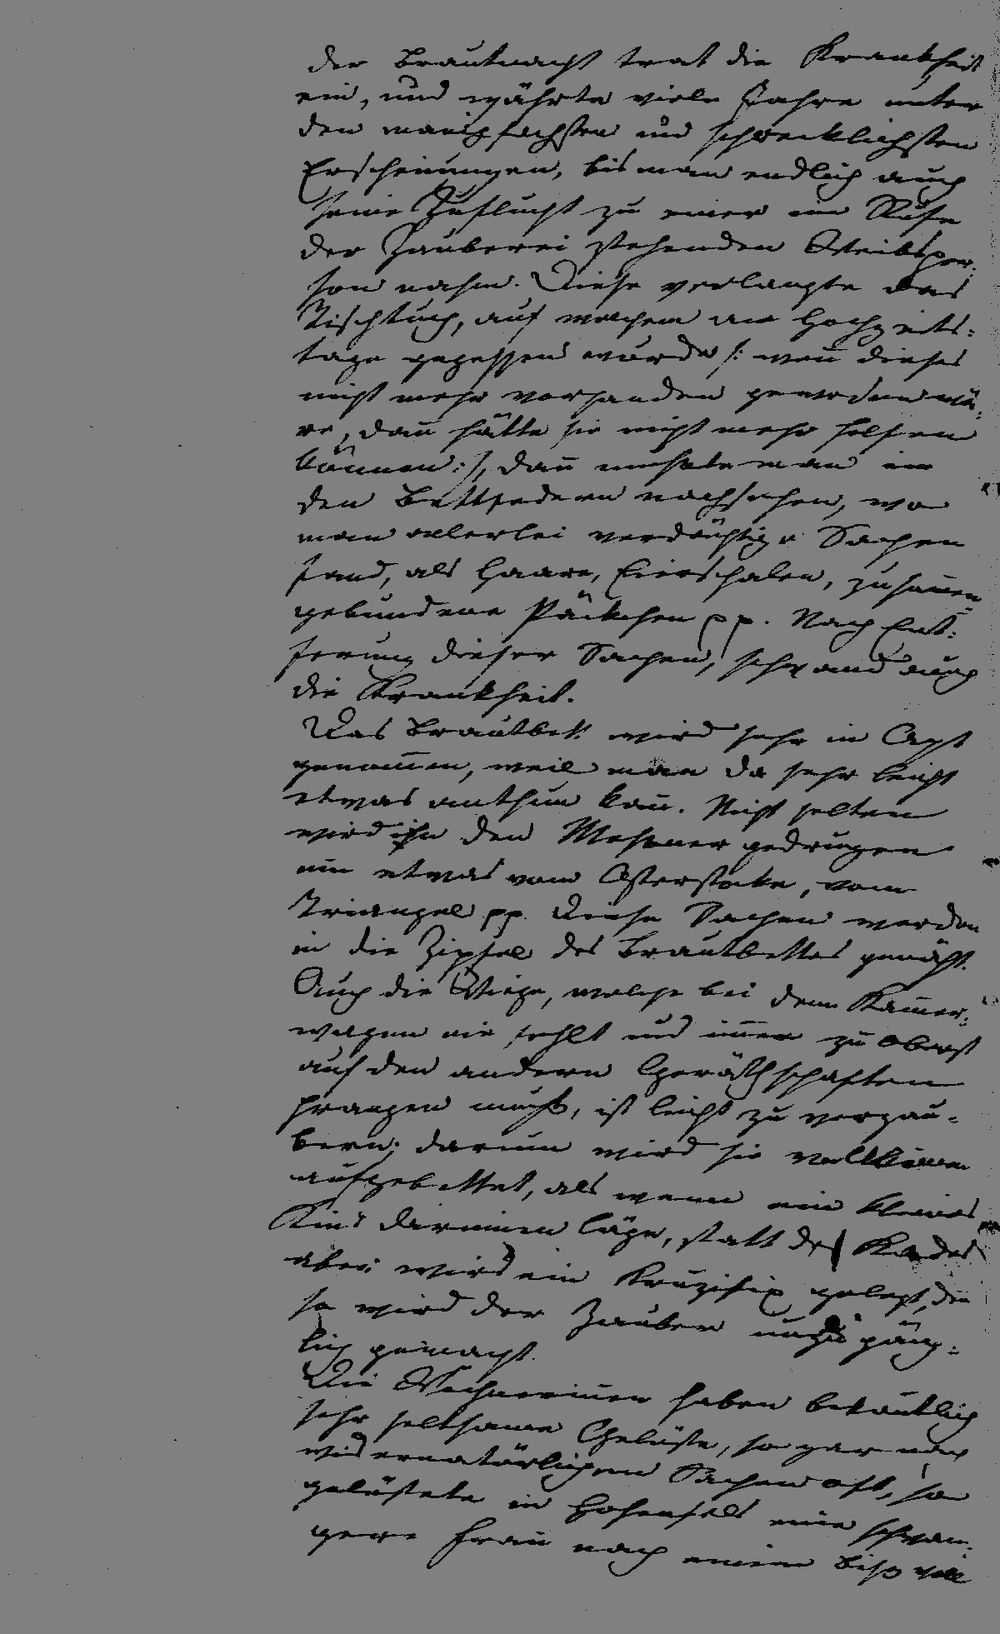 der Brautnacht trat die Krankheit
ein, und währte viele Jahre unter
den manigfachsten und schrecklichsten
Erscheinungen, bis man endlich auch
seine Zuflucht zu einer im Rufe
der Zauberei stehenden Weibsper-
son nahm. Diese verlangte das
Tischtuch, auf welchem am Hochzeits-
tage gegessen wurde /: wenn dieses
nicht mehr vorhanden gewesen wä-
re, dann hätte sie nicht mehr helfen
können :/, dann mußte man in
den Bettfedern nachsehen, wo
man allerlei verdächtige Sachen
fand, als Haare, Eierschalen, zusammen-
gebundene Päckchen pp. Nach Ent-
fernung dieser Sachen, schwand auch
die Krankheit.
Das Brautbett wird sehr in Acht
genommen, weil man da sehr leicht
etwas anthun kann. Nicht selten
wird in den Meßner gedrungen
um etwas vom Osterstocke, vom
Triangel pp. Diese Sachen werden
in die Zipfel des Brautbettes genäht.
Auch die Wiege, welche bei dem Kammer-
wagen nie fehlt und immer zu oberst
auf den andern Geräthschaften
prangen muß, ist leicht zu verzau-
bern; darum wird sie vollkommen
aufgebettet, als wenn ein kleines
Kind darinnen läge, statt des Kindes
aber wird ein Kruzifix gelegt, denn
so wird der Zauber unzugäng-
lich gemacht.
Die Wöchnerinnen haben bekanntlich
sehr seltsame Gelüste, sogar nach
widernatürlichen Sachen oft, so
gelüstete in Hohenfels eine schwan-
gere Frau nach einem Biß